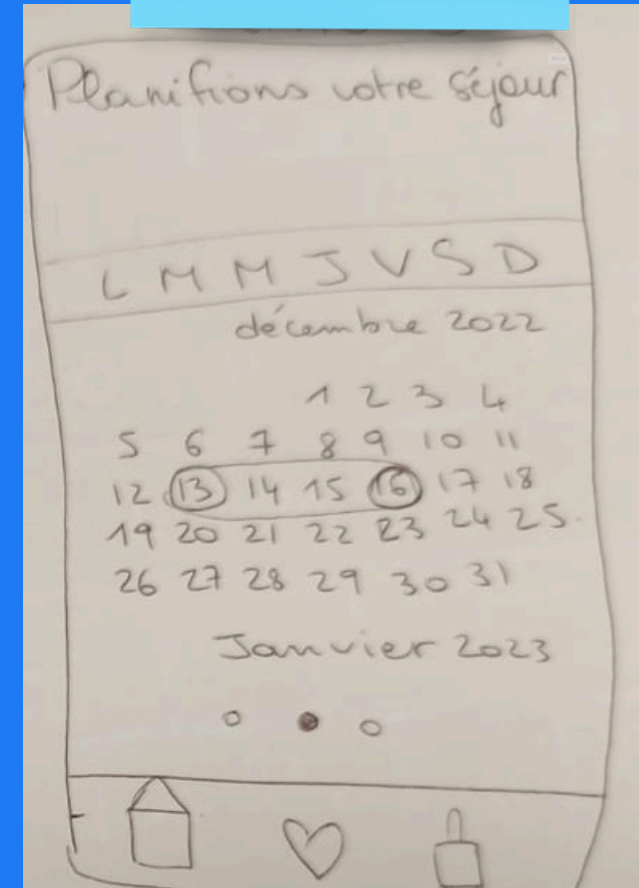 Planifions votre séjour
L M M J V S D
décembre 2022
1 2 3 4
5 6 7 8 9 10 11
12 13 14 15 16 17 18
19 20 21 22 23 24 25
26 27 28 29 30 31
Janvier 2023